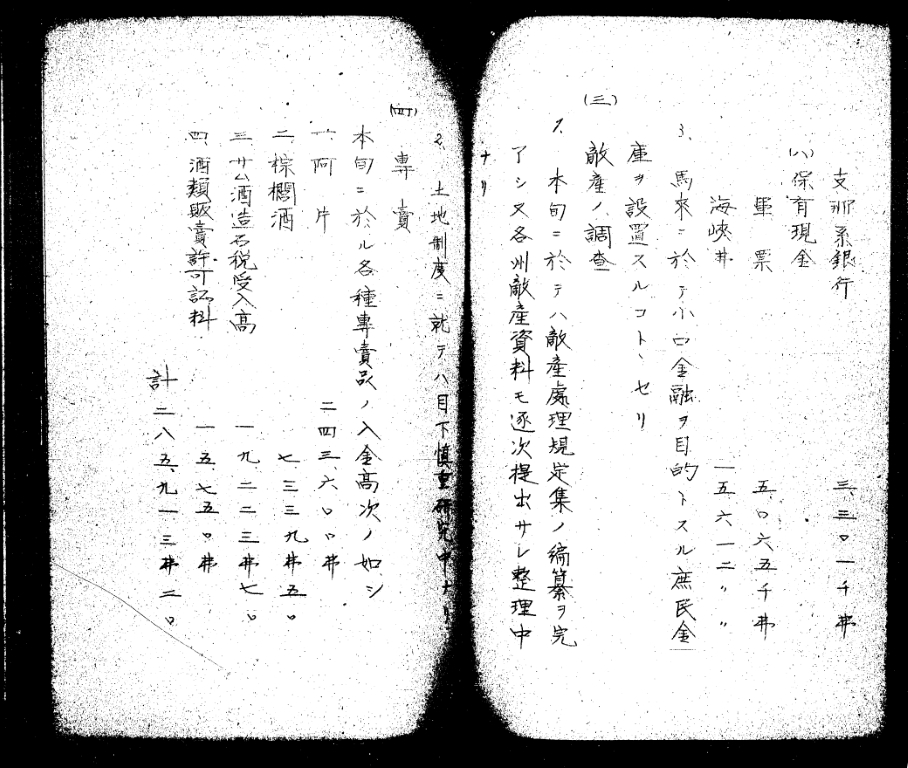 支那系銀行　三、三〇一千弗
(八)保有現金
軍票　五、〇六五千弗
海峡弗　一五六一二〃〃
3. 馬來ニ於テ小口金融ヲ目的トスル庶民金
庫ヲ設置スルコトヽセリ
(三)
敵産ノ調査
1. 本旬ニ於テハ敵産處理規定集ノ編纂ヲ完
アシ又各州敵産資料モ逐次提出サレ整理中
ナリ
2. 土地制度ニ就テハ目下慎重研究中ナリ
(四)
専賣
本旬ニ於ル各種專賣品ノ入金高次ノ如シ
一、阿片　二四三、六〇〇弗
二、棕櫚酒　七、三三九弗五〇
三、サム酒造石税受入高　一九二二三弗七〇
四、酒類販賣許可証料　一五、七五〇弗
計　二八五、九一三弗二〇